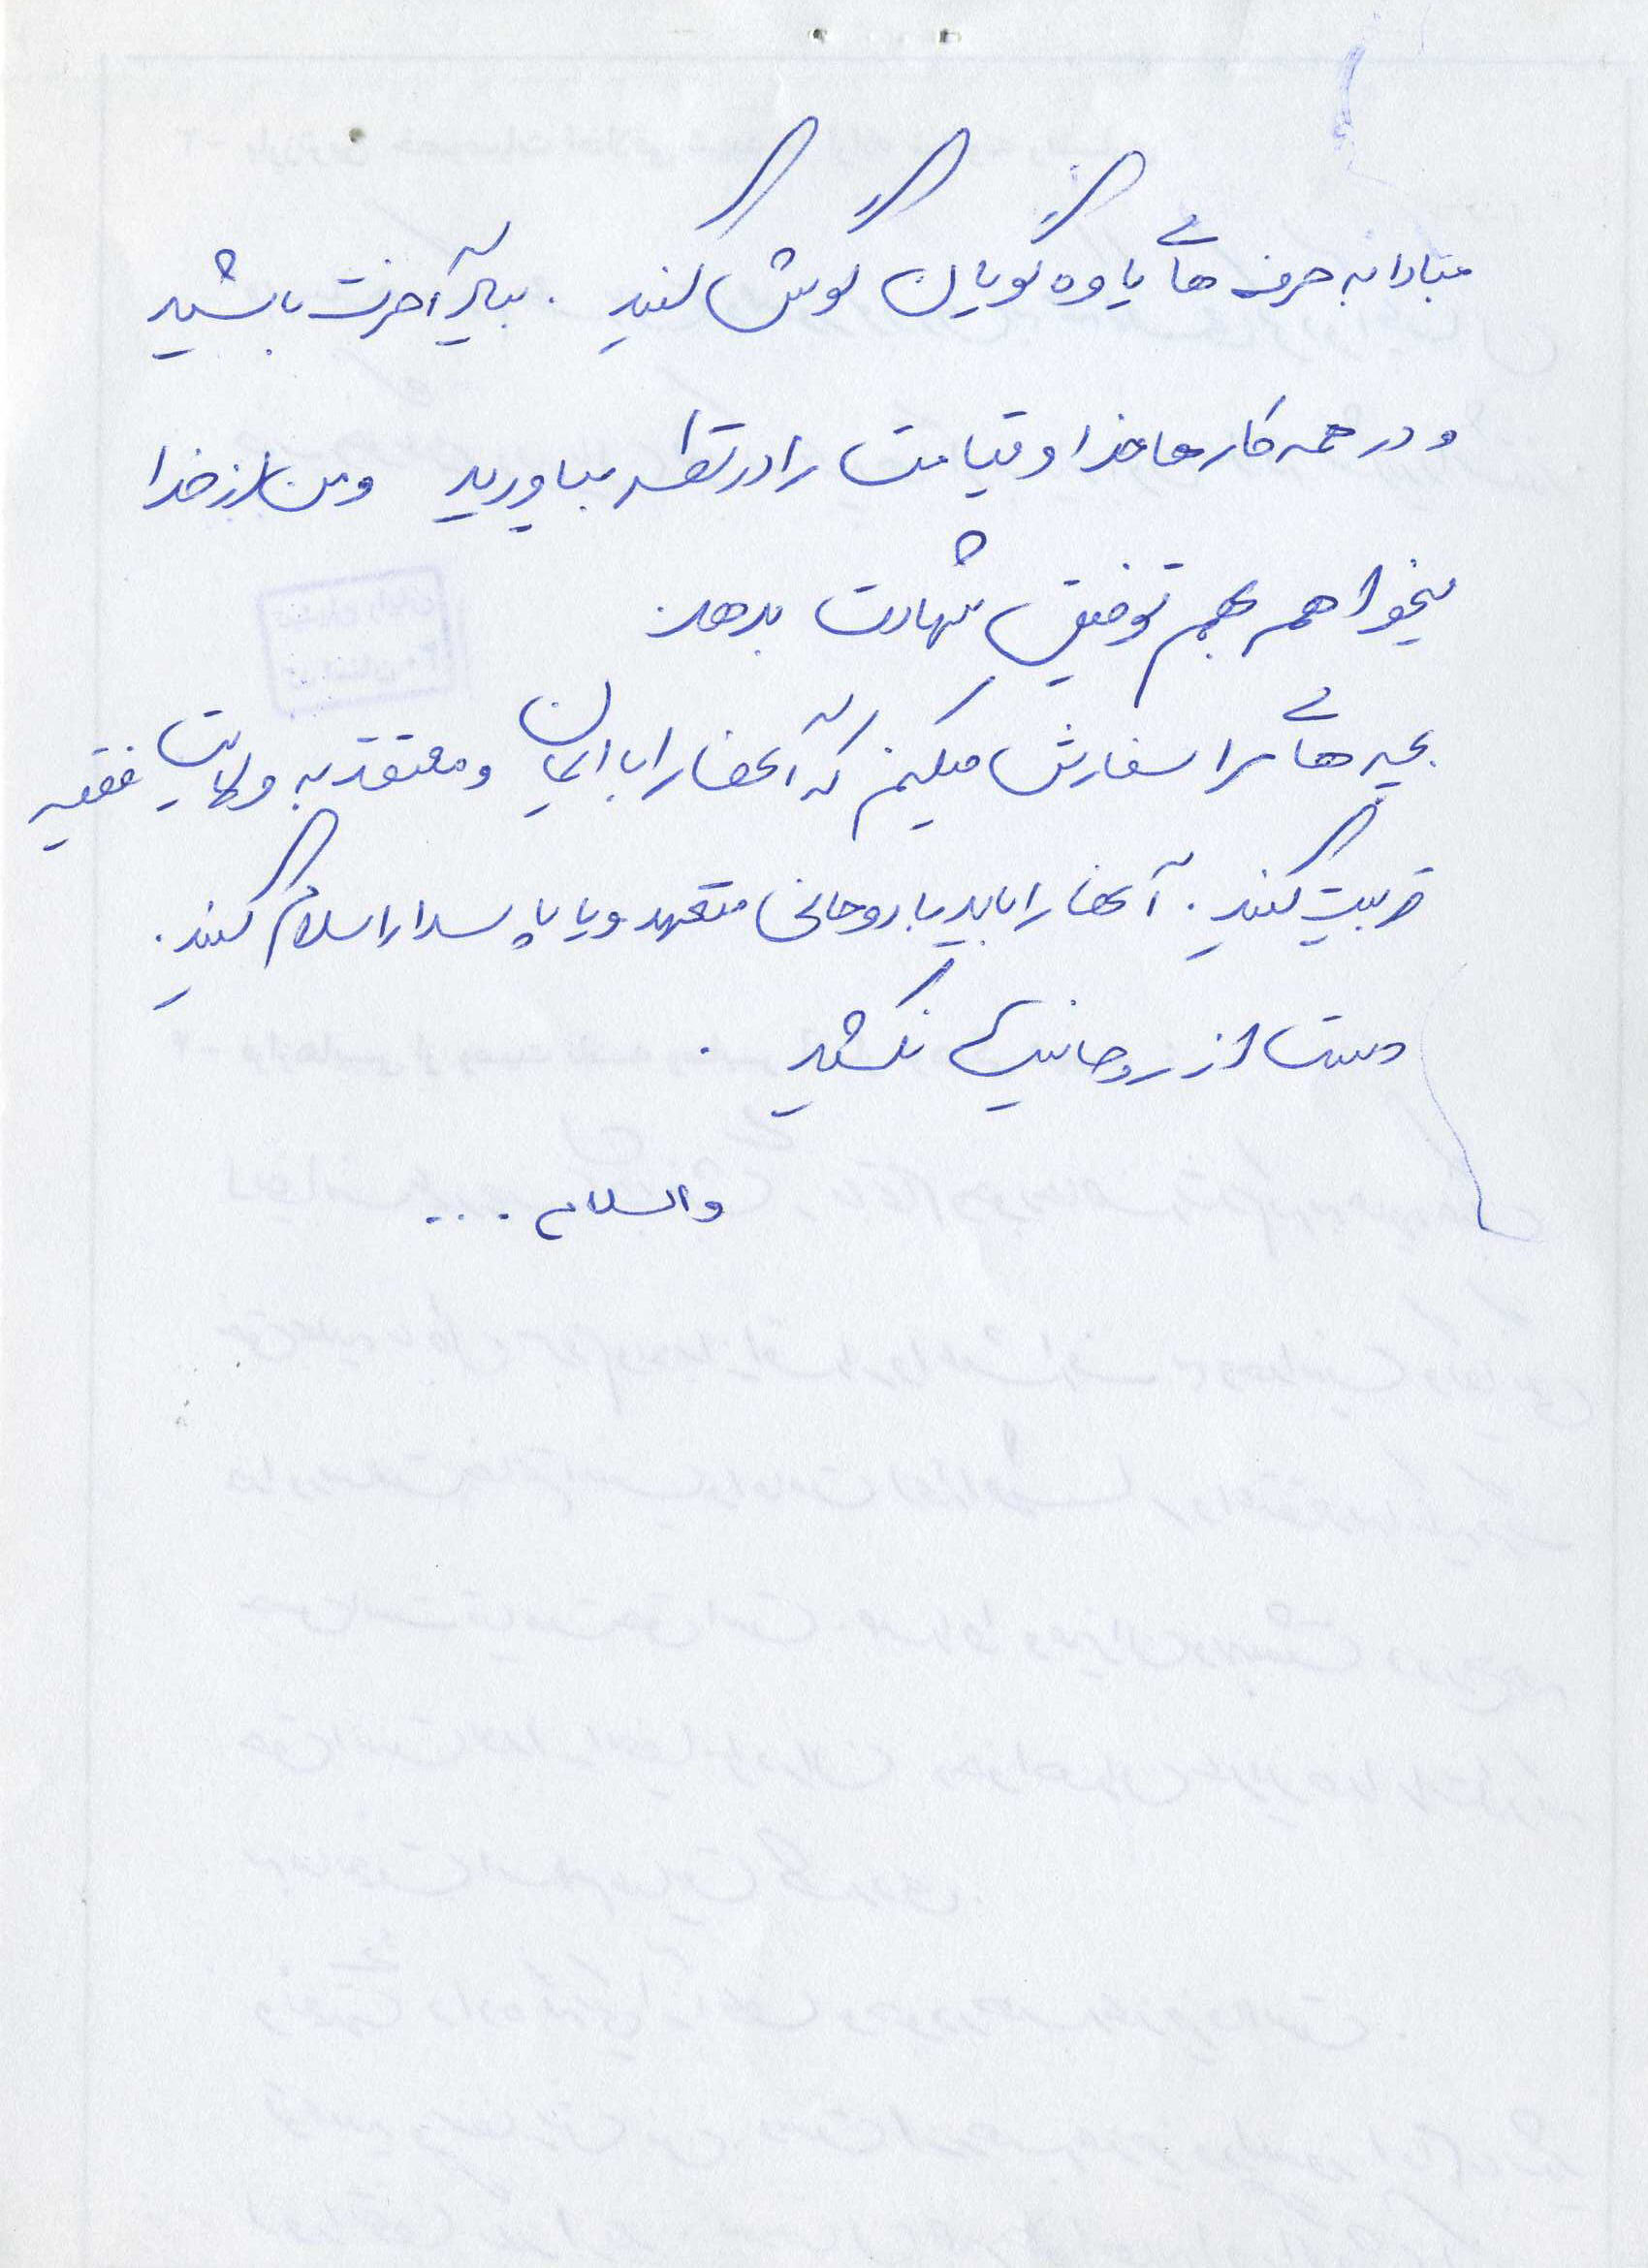 مبادا به حرف های یاوه گویان گوش کنید . بیاد آخرت باشید
و در همه کارها خدا و قیامت را در نظر بیاورید و من از خدا
میخواهم بهم توفیق شهادت بدهد.
بچه های را سفارش میکنم که آنها را با ایمان و معتقد به ولایت فقیه
تربیت کنید . آنها را باید یا روحانی متعهد و یا پاسدار اسلام کنید .
دست از روحانیت نکشید .
والسلام ...